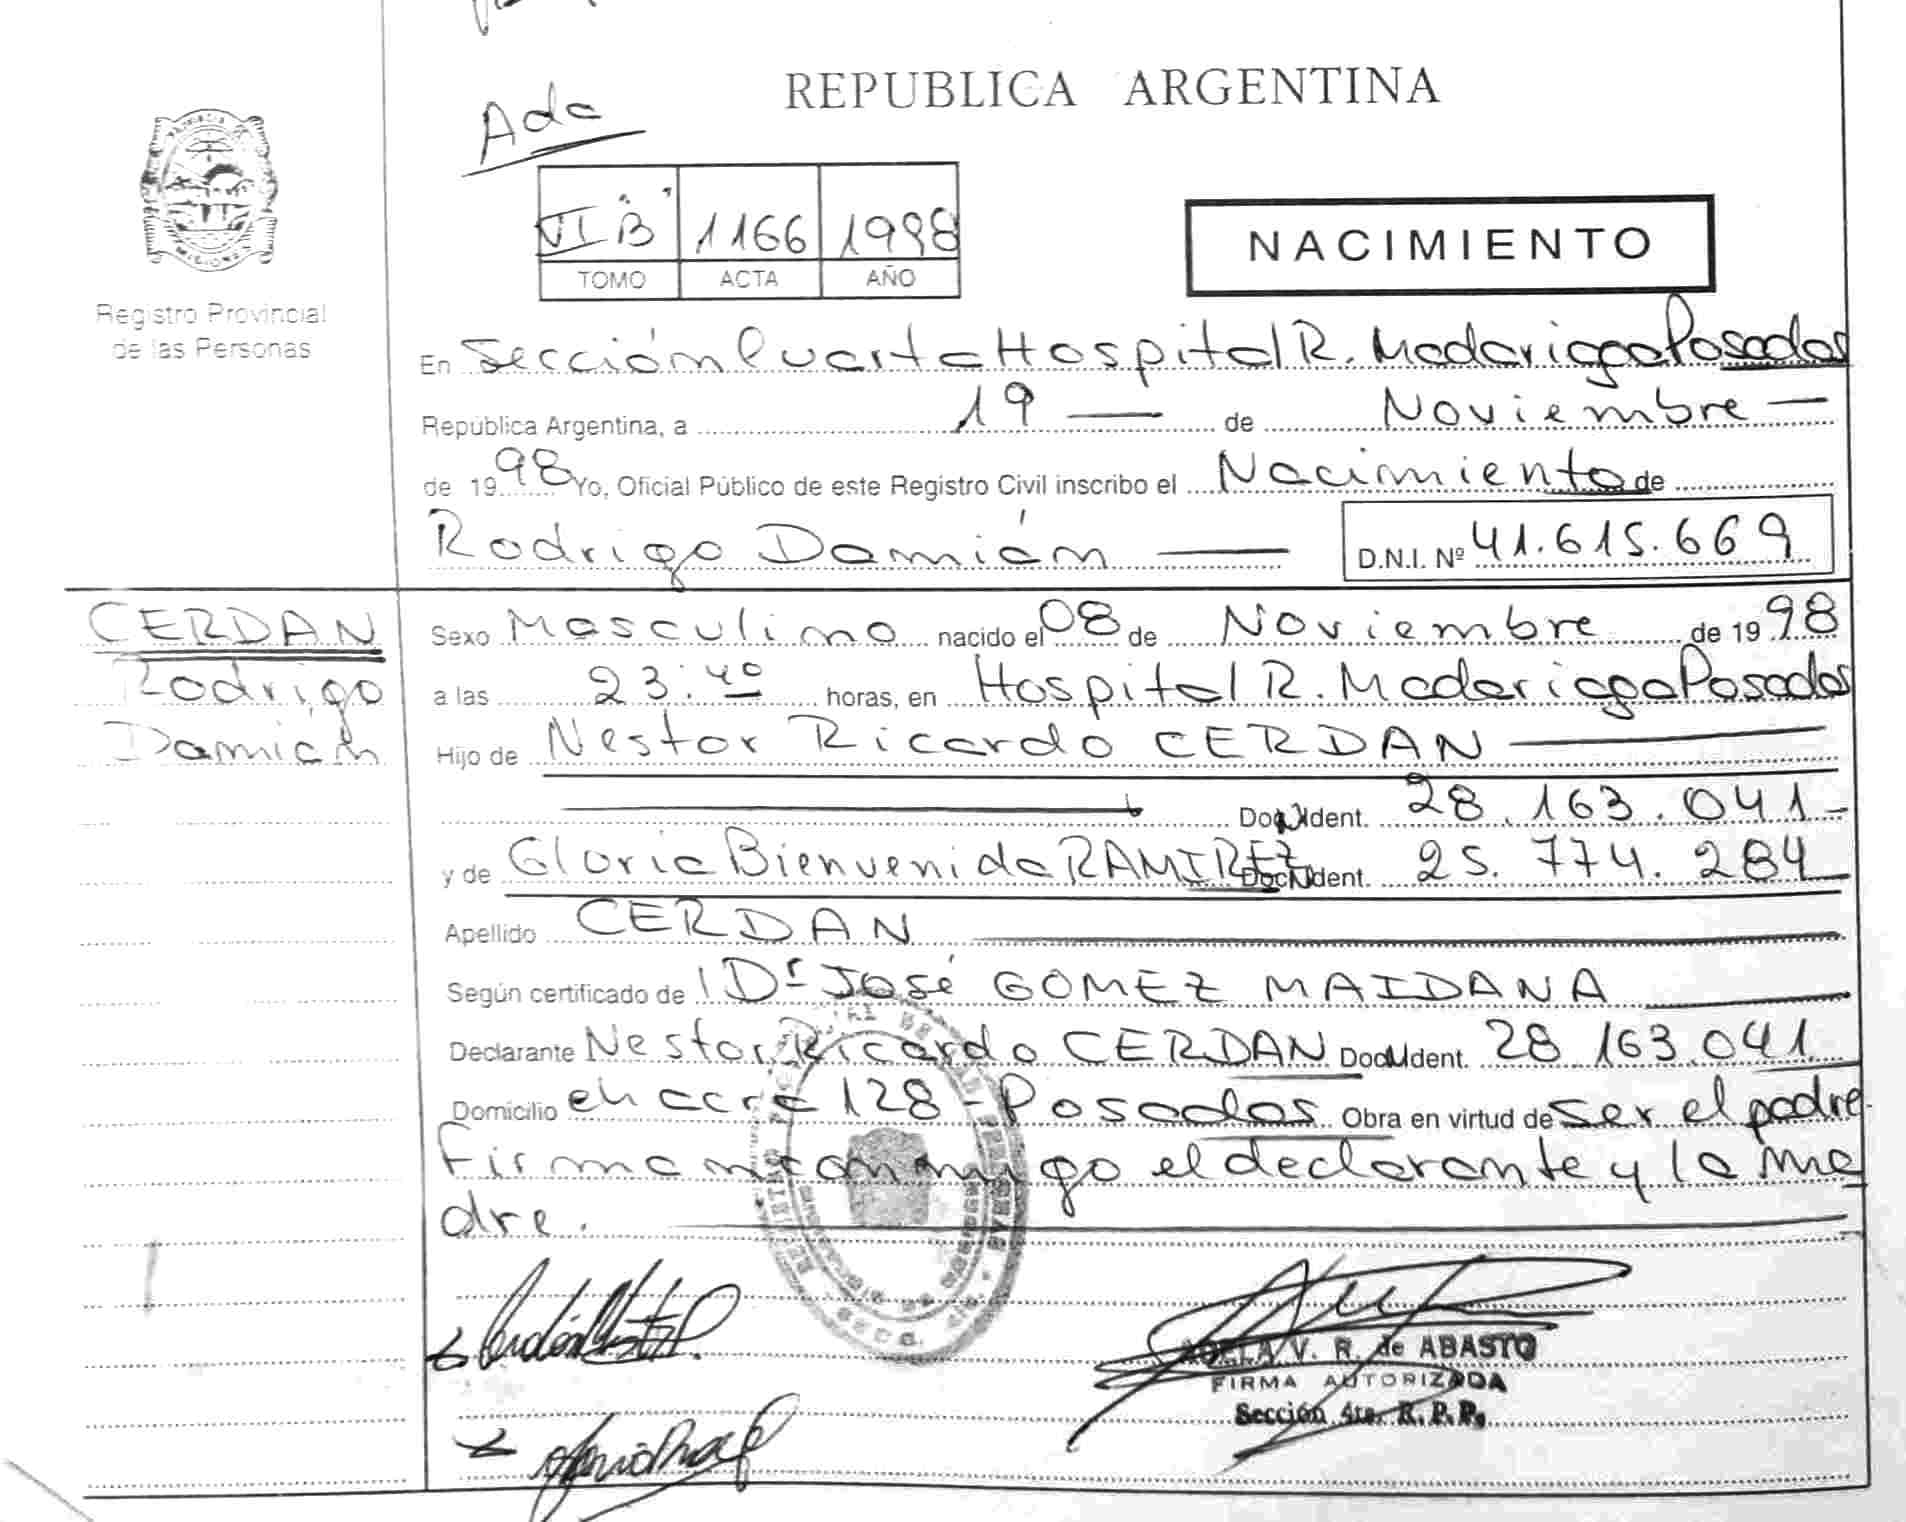 REPUBLICA ARGENTINA
Ada
VI "B" 1166 1998
TOMO ACTA AÑO
NACIMIENTO
Registro Provincial
de las Personas
En Sección Cuarta Hospital R. Madariaga Posadas
República Argentina, a 19 de Noviembre
de 1998 Yo, Oficial Público de este Registro Civil inscribo el Nacimiento de
Rodrigo Damián D.N.I. Nº 41.615.669
CERDAN
Rodrigo
Damián
Sexo Masculino nacido el 08 de Noviembre de 1998
a las 23:40 horas, en Hospital R. Madariaga Posadas
Hijo de Nestor Ricardo CERDAN
Doc. Ident. 28.163.041
y de Gloria Bienvenida RAMIREZ Doc. Ident. 25.774.284
Apellido CERDAN
Según certificado de Dr José GOMEZ MAIDANA
Declarante Nestor Ricardo CERDAN Doc. Ident. 28.163.041
Domicilio en acra 128 - Posadas Obra en virtud de ser el padre.
Firman conmigo el declarante y la ma
dre.
V. R. de ABASTO
FIRMA AUTORIZADA
Sección 4ta. R. P. P.